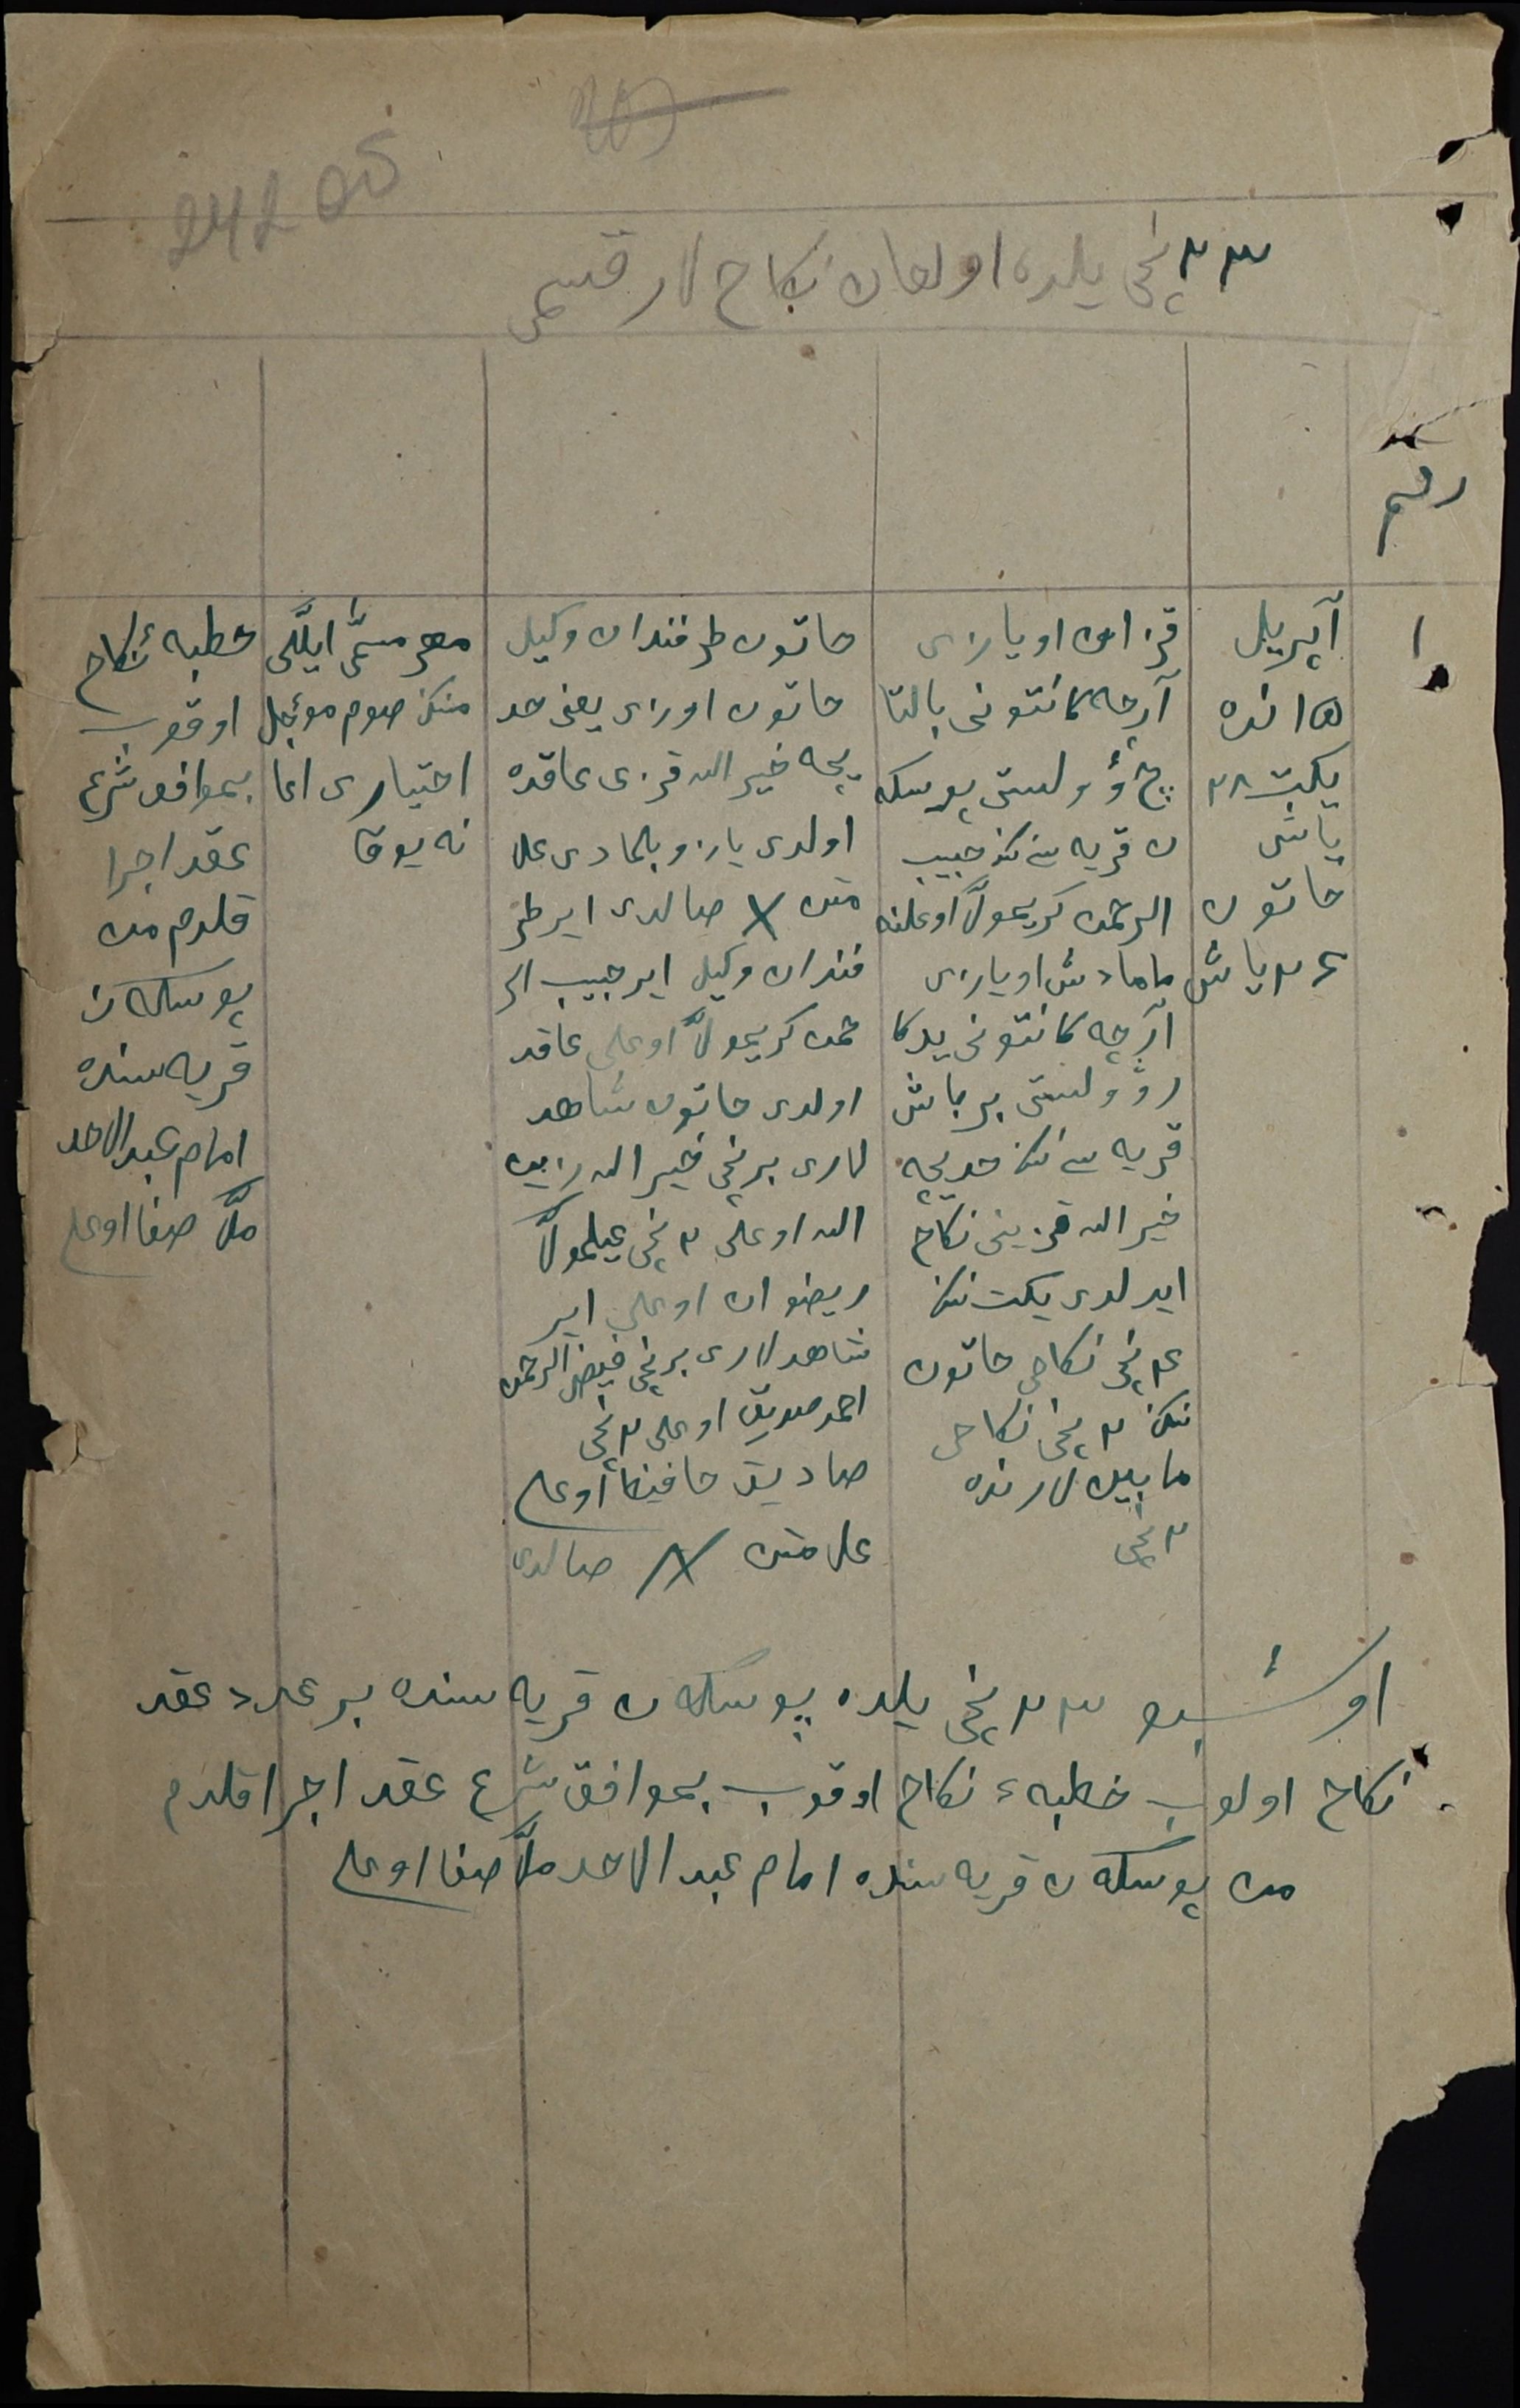 242 об
٢٣ نچی یلده اولغان نکاح لار قسمی
رقم
١
آپریل
١٥ انده
یکت ٢٨
یاشی
خاتون
٢٤ یاش
قزان اویازی
آرچه کانتونی بالتا
چ وولستی پوسکه
ن قریه سی ننڭ حبیب
الرحمن کریموللا اوغلینه
مامادش اویازی
آرچه کانتونی
وولستی
قریه سی ننڭ خدیجه
خیرالله قزینی نکاح
ایدلدی یکت ننڭ
٤ نچی نکاحی خاتون
ننڭ ٢ نچی نکاحی
مابین لارنده
٢ نچی
خاتون طرفندان وکیل
خاتون اوزی یعنی خد
یجه خیرالله قزی عاقده
اولدی یازو بلمادی علا
متن X صالدی ایر طر
فندان وکیل ایر حبیب الر
حمن کریموللا اوغلی عاقد
اولدی خاتون شاهد
لاری برنچی خیرالله زین
الله اوغلی ٢ نچی عیلموللا
ریضوان اوغلی ایر
شاهدلاری برنچی فیض الرحمن
احمدصدیق اوغلی ٢ نچی
صادیق حافیظ اوغلی
علامتن X صالدی
مهر مسمّی ایللی
منڭ صوم موٴجل
اختیاری اغا
نه یوق
خطبه ٔ نکاح
اوقوب
بموافق شرع
عقد اجرا
قلدم من
پوسکه ن
قریه سنده
امام عبدالاحد
ملّا صفا اوغلی
اوشبو ٢٣ نچی یلده پوسکه ن قریه سنده بر عدد عقد
نکاح اولوب خطبهء نکاح اوقوب بموافق شرع عقد اجرا قلدم
من پوسکه ن قریه سنده امام عبدالاحد ملّا صفا اوغلی